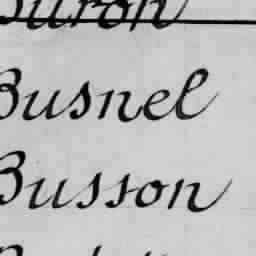 Buron
Busnel
Busson